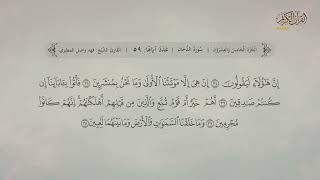 القرآن الكريم
الجزء الخامس والعشرون | سورة الدخان | عدد آياتها: ٥٩ | القارئ الشيخ: فهد واصل المطيري
إِنَّ هَٰٓؤُلَآءِ لَيَقُولُونَ ۝٣٤ إِنْ هِىَ إِلَّا مَوْتَتُنَا ٱلْأُولَىٰ وَمَا نَحْنُ بِمُنشَرِينَ ۝٣٥ فَأْتُوا۟ بِـَٔابَآئِنَآ إِن
كُنتُمْ صَٰدِقِينَ ۝٣٦ أَهُمْ خَيْرٌ أَمْ قَوْمُ تُبَّعٍ وَٱلَّذِينَ مِن قَبْلِهِمْ أَهْلَكْنَٰهُمْ إِنَّهُمْ كَانُوا۟
مُجْرِمِينَ ۝٣٧ وَمَا خَلَقْنَا ٱلسَّمَٰوَٰتِ وَٱلْأَرْضَ وَمَا بَيْنَهُمَا لَٰعِبِينَ ۝٣٨